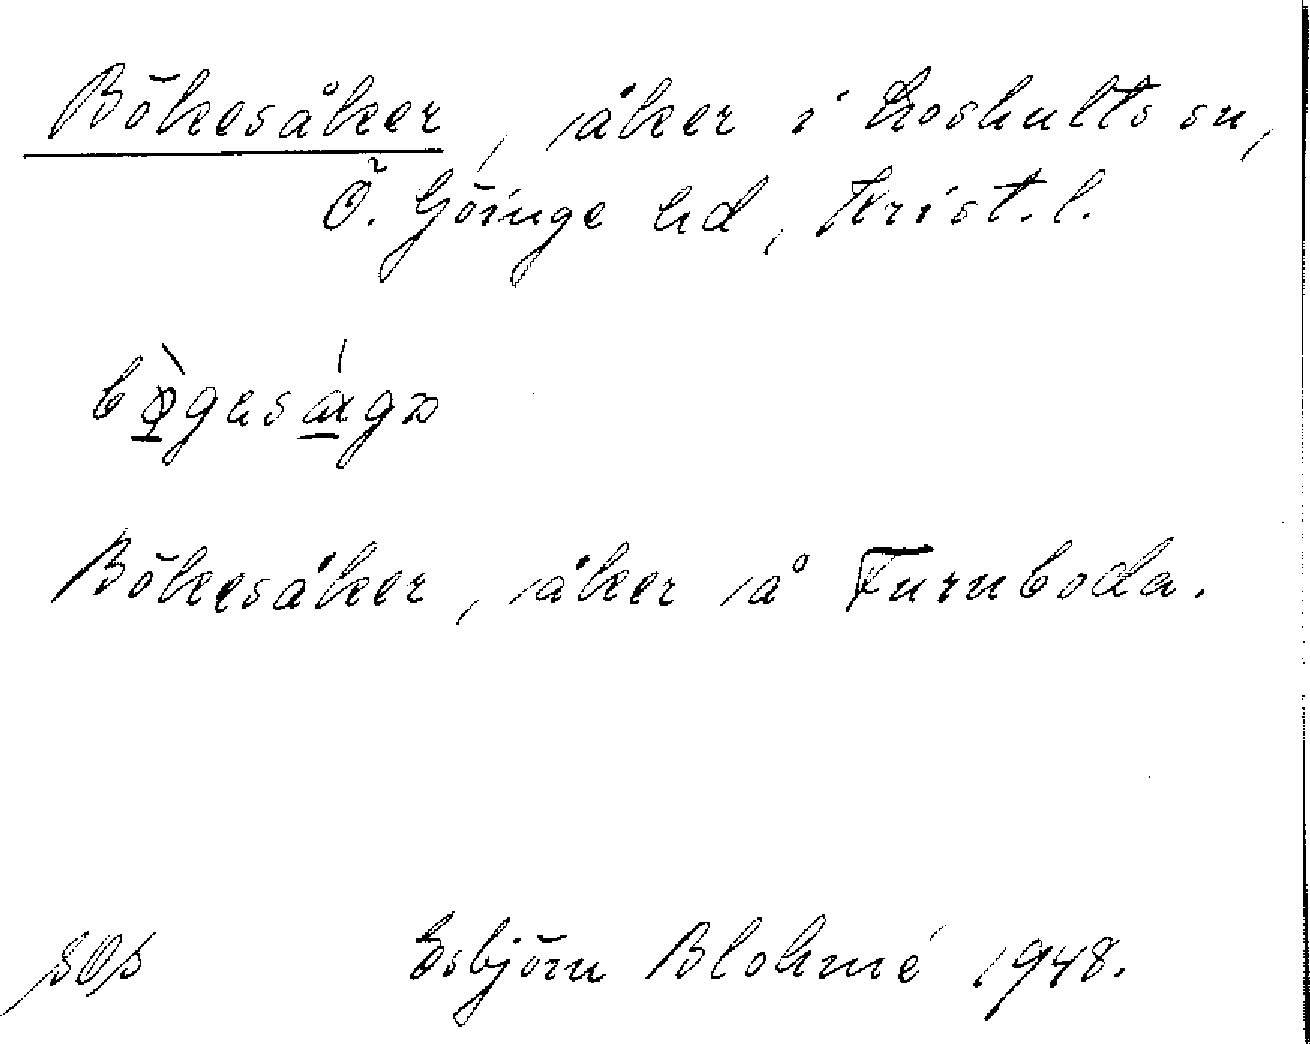 Bökesåker, åker i Loshults sn,
Ö. Göinge hd, Krist. l.
Bökesåker, åker å Furuboda.
Esbjörn Blohmé 1948.